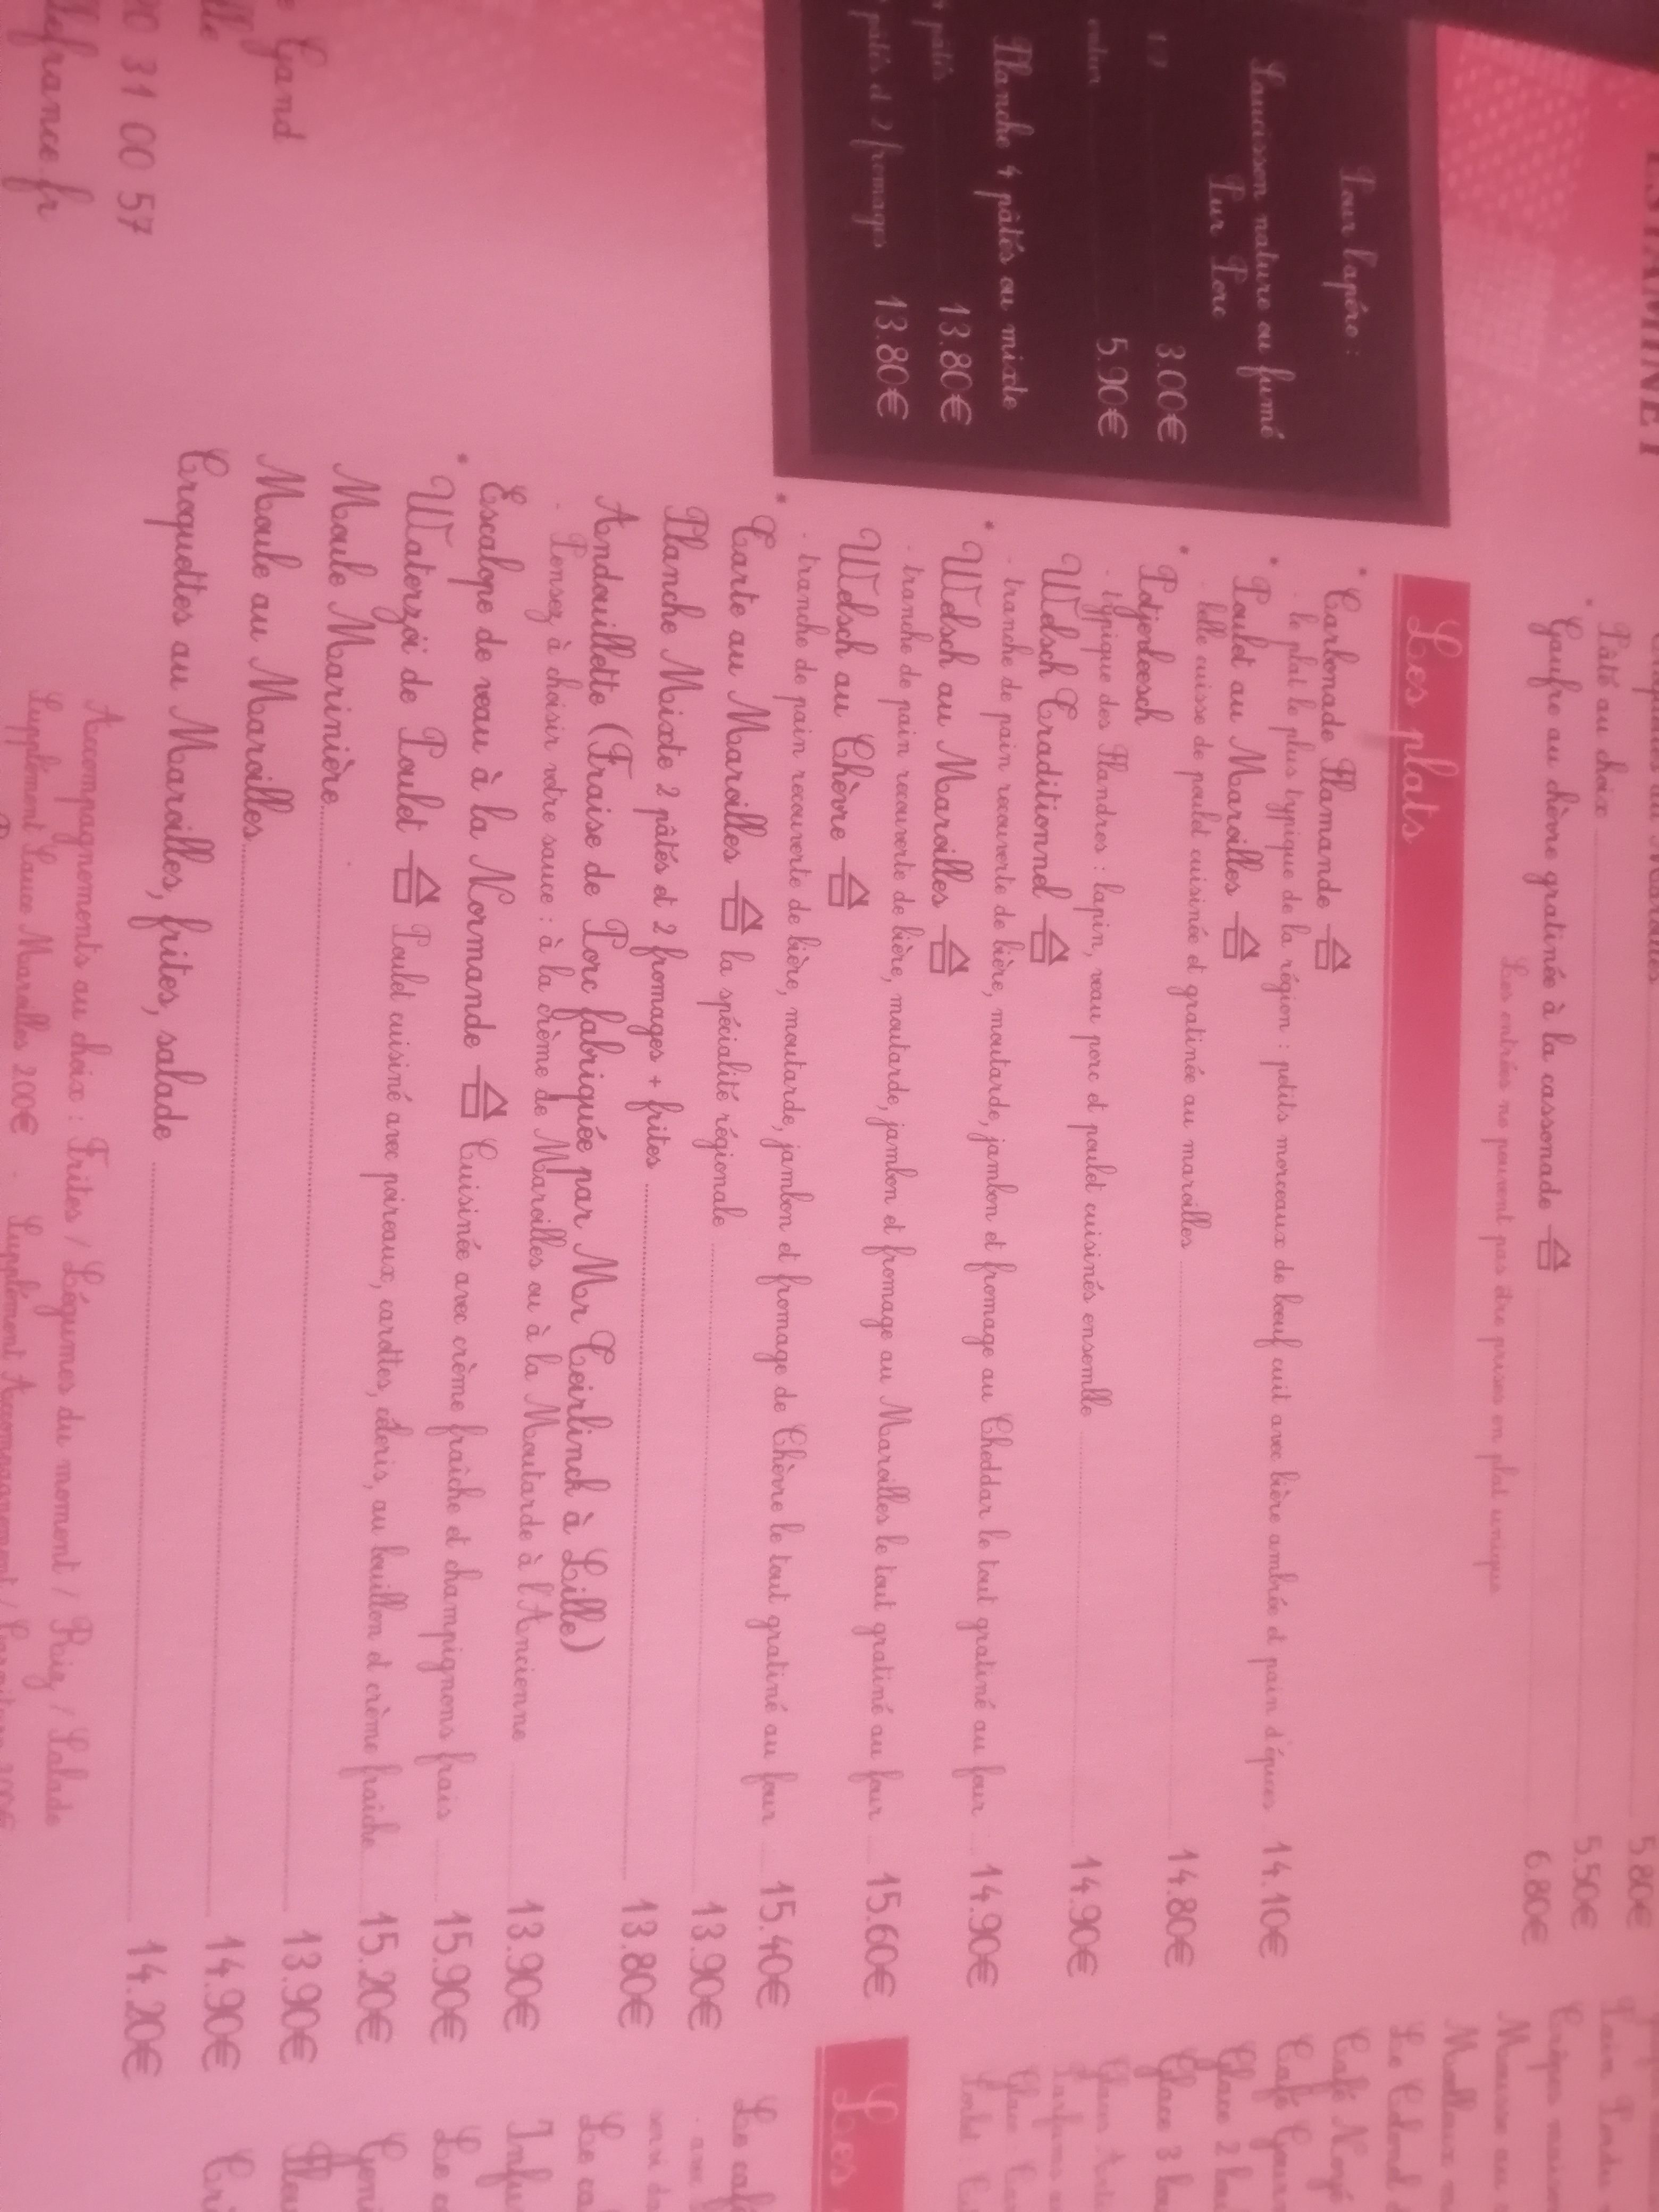 ESTAMINET
Pour l'apéro :
Saucisson nature ou fumé
Pur Porc
1/2 3.00€
entier 5.90€
Planche 4 pâtés ou mixte
4 pâtés 13.80€
pâtés et 2 fromages 13.80€
Gand
20 31 00 57
lefrance.fr
5.80€
Pâté au choix 5.50€
• Gaufre au chèvre gratinée à la cassonade 6.80€
Les entrées ne peuvent pas être prises en plat unique
Les plats
• Carbonade Flamande
- le plat le plus typique de la région : petits morceaux de bœuf cuit avec bière ambrée et pain d'épices 14.10€
• Poulet au Maroilles
- belle cuisse de poulet cuisinée et gratinée au maroilles 14.80€
• Potjevleesch
- typique des Flandres : lapin, veau porc et poulet cuisinés ensemble 14.90€
Welsch Traditionnel
- tranche de pain recouverte de bière, moutarde, jambon et fromage au Cheddar le tout gratiné au four 14.90€
• Welsch au Maroilles
- tranche de pain recouverte de bière, moutarde, jambon et fromage au Maroilles le tout gratiné au four 15.60€
Welsch au Chèvre
- tranche de pain recouverte de bière, moutarde, jambon et fromage de Chèvre le tout gratiné au four 15.40€
• Tarte au Maroilles la spécialité régionale 13.90€
Planche Mixte 2 pâtés et 2 fromages + frites 13.80€
Andouillette (Fraise de Porc fabriquée par Mr Teirlinck à Lille)
- Pensez à choisir votre sauce : à la crème de Maroilles ou à la Moutarde à l'Ancienne 13.90€
Escalope de veau à la Normande Cuisinée avec crème fraîche et champignons frais 15.90€
• Waterzoï de Poulet Poulet cuisiné avec poireaux, carottes, céleris, au bouillon et crème fraîche 15.20€
Moule Marinière 13.90€
Moule au Maroilles 14.90€
Croquettes au Maroilles, frites, salade 14.20€
Accompagnements au choix : Frites / Légumes du moment / Riz / Salade
Supplément Sauce Maroilles 2.00€ - Supplément Accompagnement
Les
Café
Glace 2
Glace 3
Le café